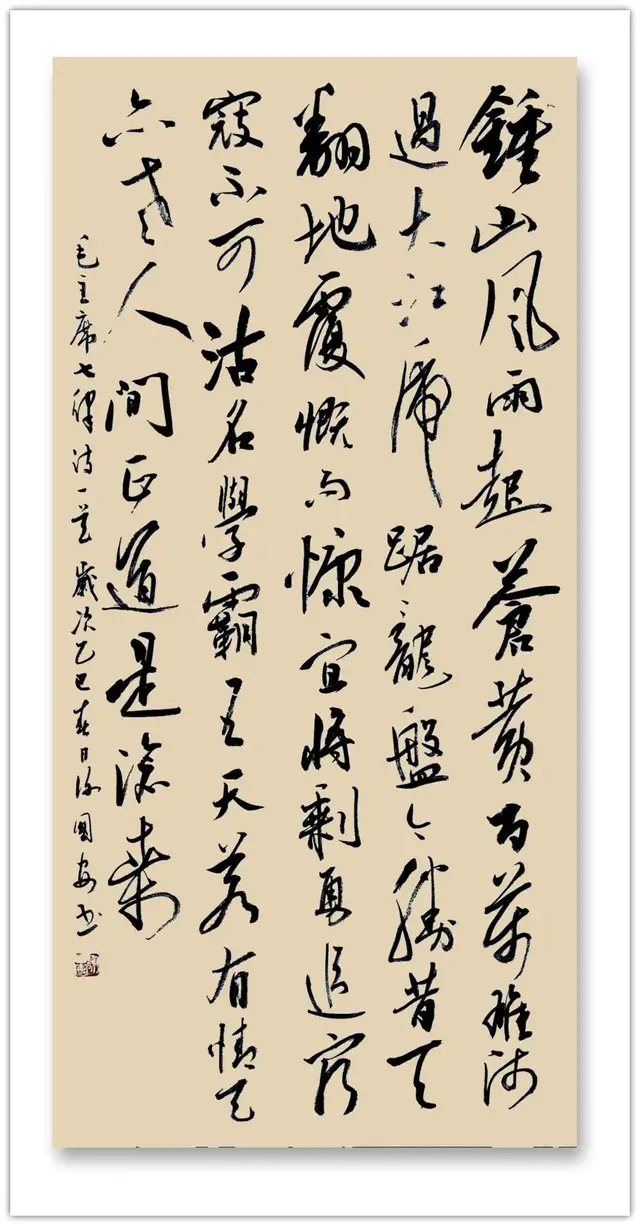 鍾山风雨起蒼黄百萬雄师
過大江虎踞龍盤今勝昔天
翻地覆慨而慷宜將剩勇追窮
寇不可沽名學霸王天若有情天
亦老人间正道是滄桑
毛主席七律诗一首 歲次乙巳春日徐國安书